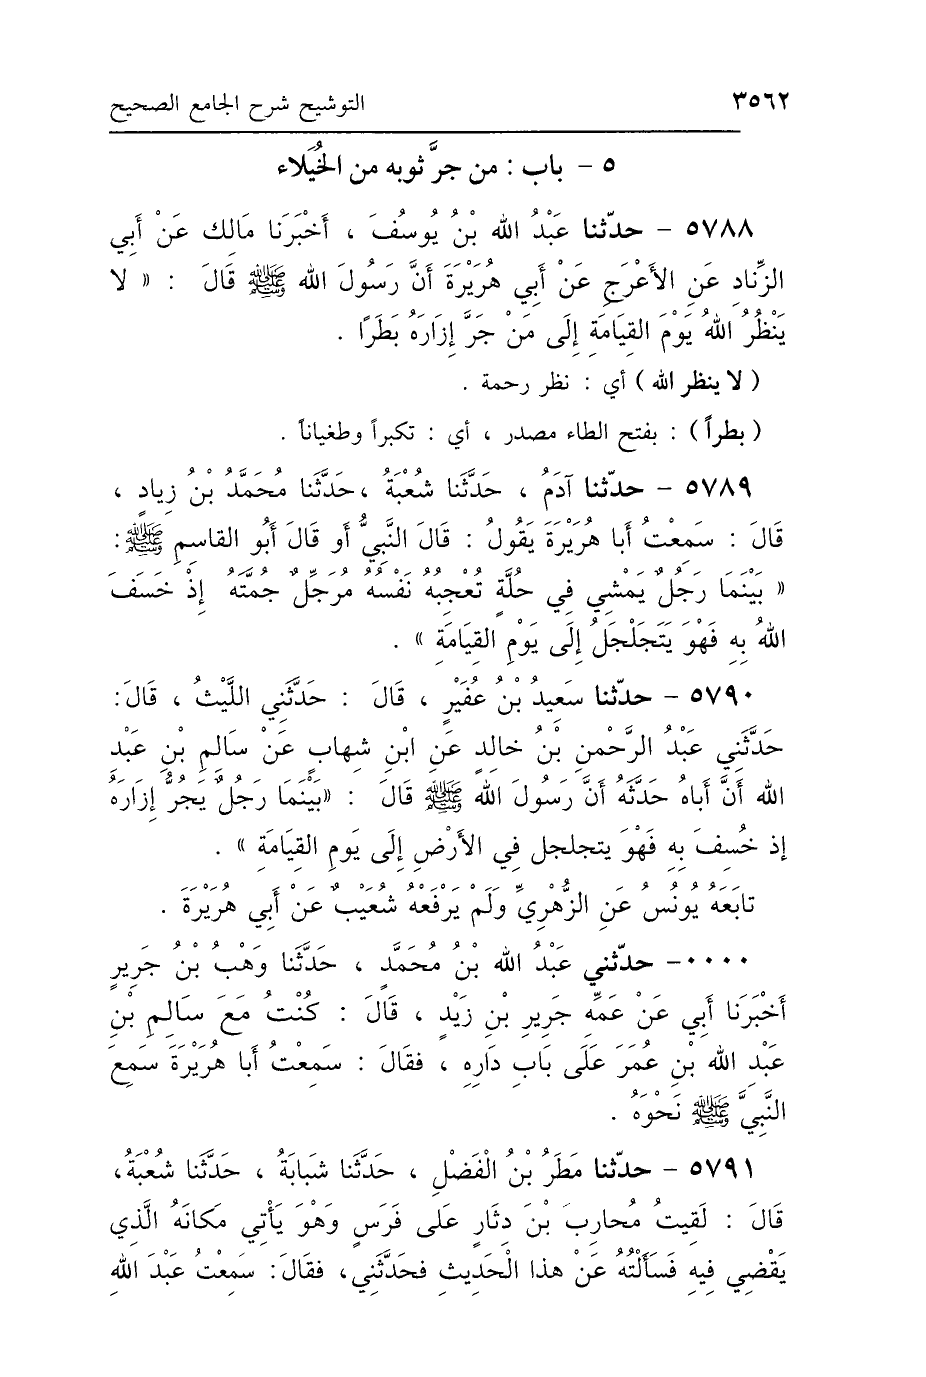 ٣٥٦٢ التوشيح شرح الجامع الصحيح
٥ - باب : من جرَّ ثوبه من الخُيَلاء
٥٧٨٨ - حدّثنا عَبْدُ الله بْنُ يُوسُفَ ، أَخْبَرَنَا مَالك عَنْ أَبي
الزِّنادِ عَنِ الأَعْرَجِ عَنْ أَبي هُرَيْرَةَ أَنَّ رَسُولَ الله ﷺ قَالَ : « لا
يَنْظُرُ اللهُ يَوْمَ القِيَامَةِ إِلَى مَنْ جَرَّ إِزَارَهُ بَطَرًا .
( لا ينظر الله ) أي : نظر رحمة .
( بطراً ) : بفتح الطاء مصدر ، أي : تكبراً وطغياناً .
٥٧٨٩ - حدّثنا آدَمُ ، حَدَّثَنا شُعْبَةُ ، حَدَّثَنا مُحَمَّدُ بْنُ زِيادٍ ،
قَالَ : سَمِعْتُ أَبا هُرَيْرَةَ يَقُولُ : قَالَ النَّبِيُّ أَو قَالَ أَبُو القاسِمِ ﷺ :
« بَيْنَمَا رَجُلٌ يَمْشِي فِي حُلَّةٍ تُعْجِبُهُ نَفْسُهُ مُرَجِّلٌ جُمَّتَهُ إِذْ خَسَفَ
اللهُ بِهِ فَهْوَ يَتَجَلْجَلُ إِلَى يَوْمِ القِيَامَةِ » .
٥٧٩٠ - حدّثنا سَعِيدُ بْنُ عُفَيْرٍ ، قَالَ : حَدَّثَنِي اللَّيْثُ ، قَالَ:
حَدَّثَنِي عَبْدُ الرَّحْمنِ بْنُ خالدٍ عَنِ ابْنِ شِهابٍ عَنْ سَالِمِ بْنِ عَبْدِ
الله أَنَّ أَباهُ حَدَّثَهُ أَنَّ رَسُولَ الله ﷺ قَالَ : «بَيْنَمَا رَجُلٌ يَجُرُّ إِزَارَهُ
إذ خُسِفَ بِهِ فَهْوَ يتجلجل فِي الأَرْضِ إِلَى يَومِ القِيَامَةِ » .
تابَعَهُ يُونُسُ عَنِ الزُّهْرِيِّ وَلَمْ يَرْفَعْهُ شُعَيْبٌ عَنْ أَبِي هُرَيْرَةَ .
٠٠٠٠- حدّثني عَبْدُ الله بْنُ مُحَمَّدٍ ، حَدَّثَنا وَهْبُ بْنُ جَرِيرٍ
أَخْبَرَنا أَبي عَنْ عَمِّهِ جَرِيرِ بْنِ زَيْدٍ ، قَالَ : كُنْتُ مَعَ سَالِمِ بْنِ
عَبْدِ الله بْنِ عُمَرَ عَلَى بَابِ دَارِهِ ، فقَالَ : سَمِعْتُ أَبا هُرَيْرَةَ سَمِعَ
النَّبِيَّ ﷺ نَحْوَهُ .
٥٧٩١ - حدّثنا مَطَرُ بْنُ الْفَضْلِ ، حَدَّثَنا شَبَابَةُ ، حَدَّثَنا شُعْبَةُ،
قَالَ : لَقِيتُ مُحارِبَ بْنَ دثَارٍ عَلى فَرَسٍ وَهْوَ يَأْتِي مَكانَهُ الَّذِي
يَقْضِي فِيهِ فَسَأَلْتُهُ عَنْ هذا الْحَدِيثِ فحَدَّثَنِي، فقَالَ: سَمِعْتُ عَبْدَ اللهِ